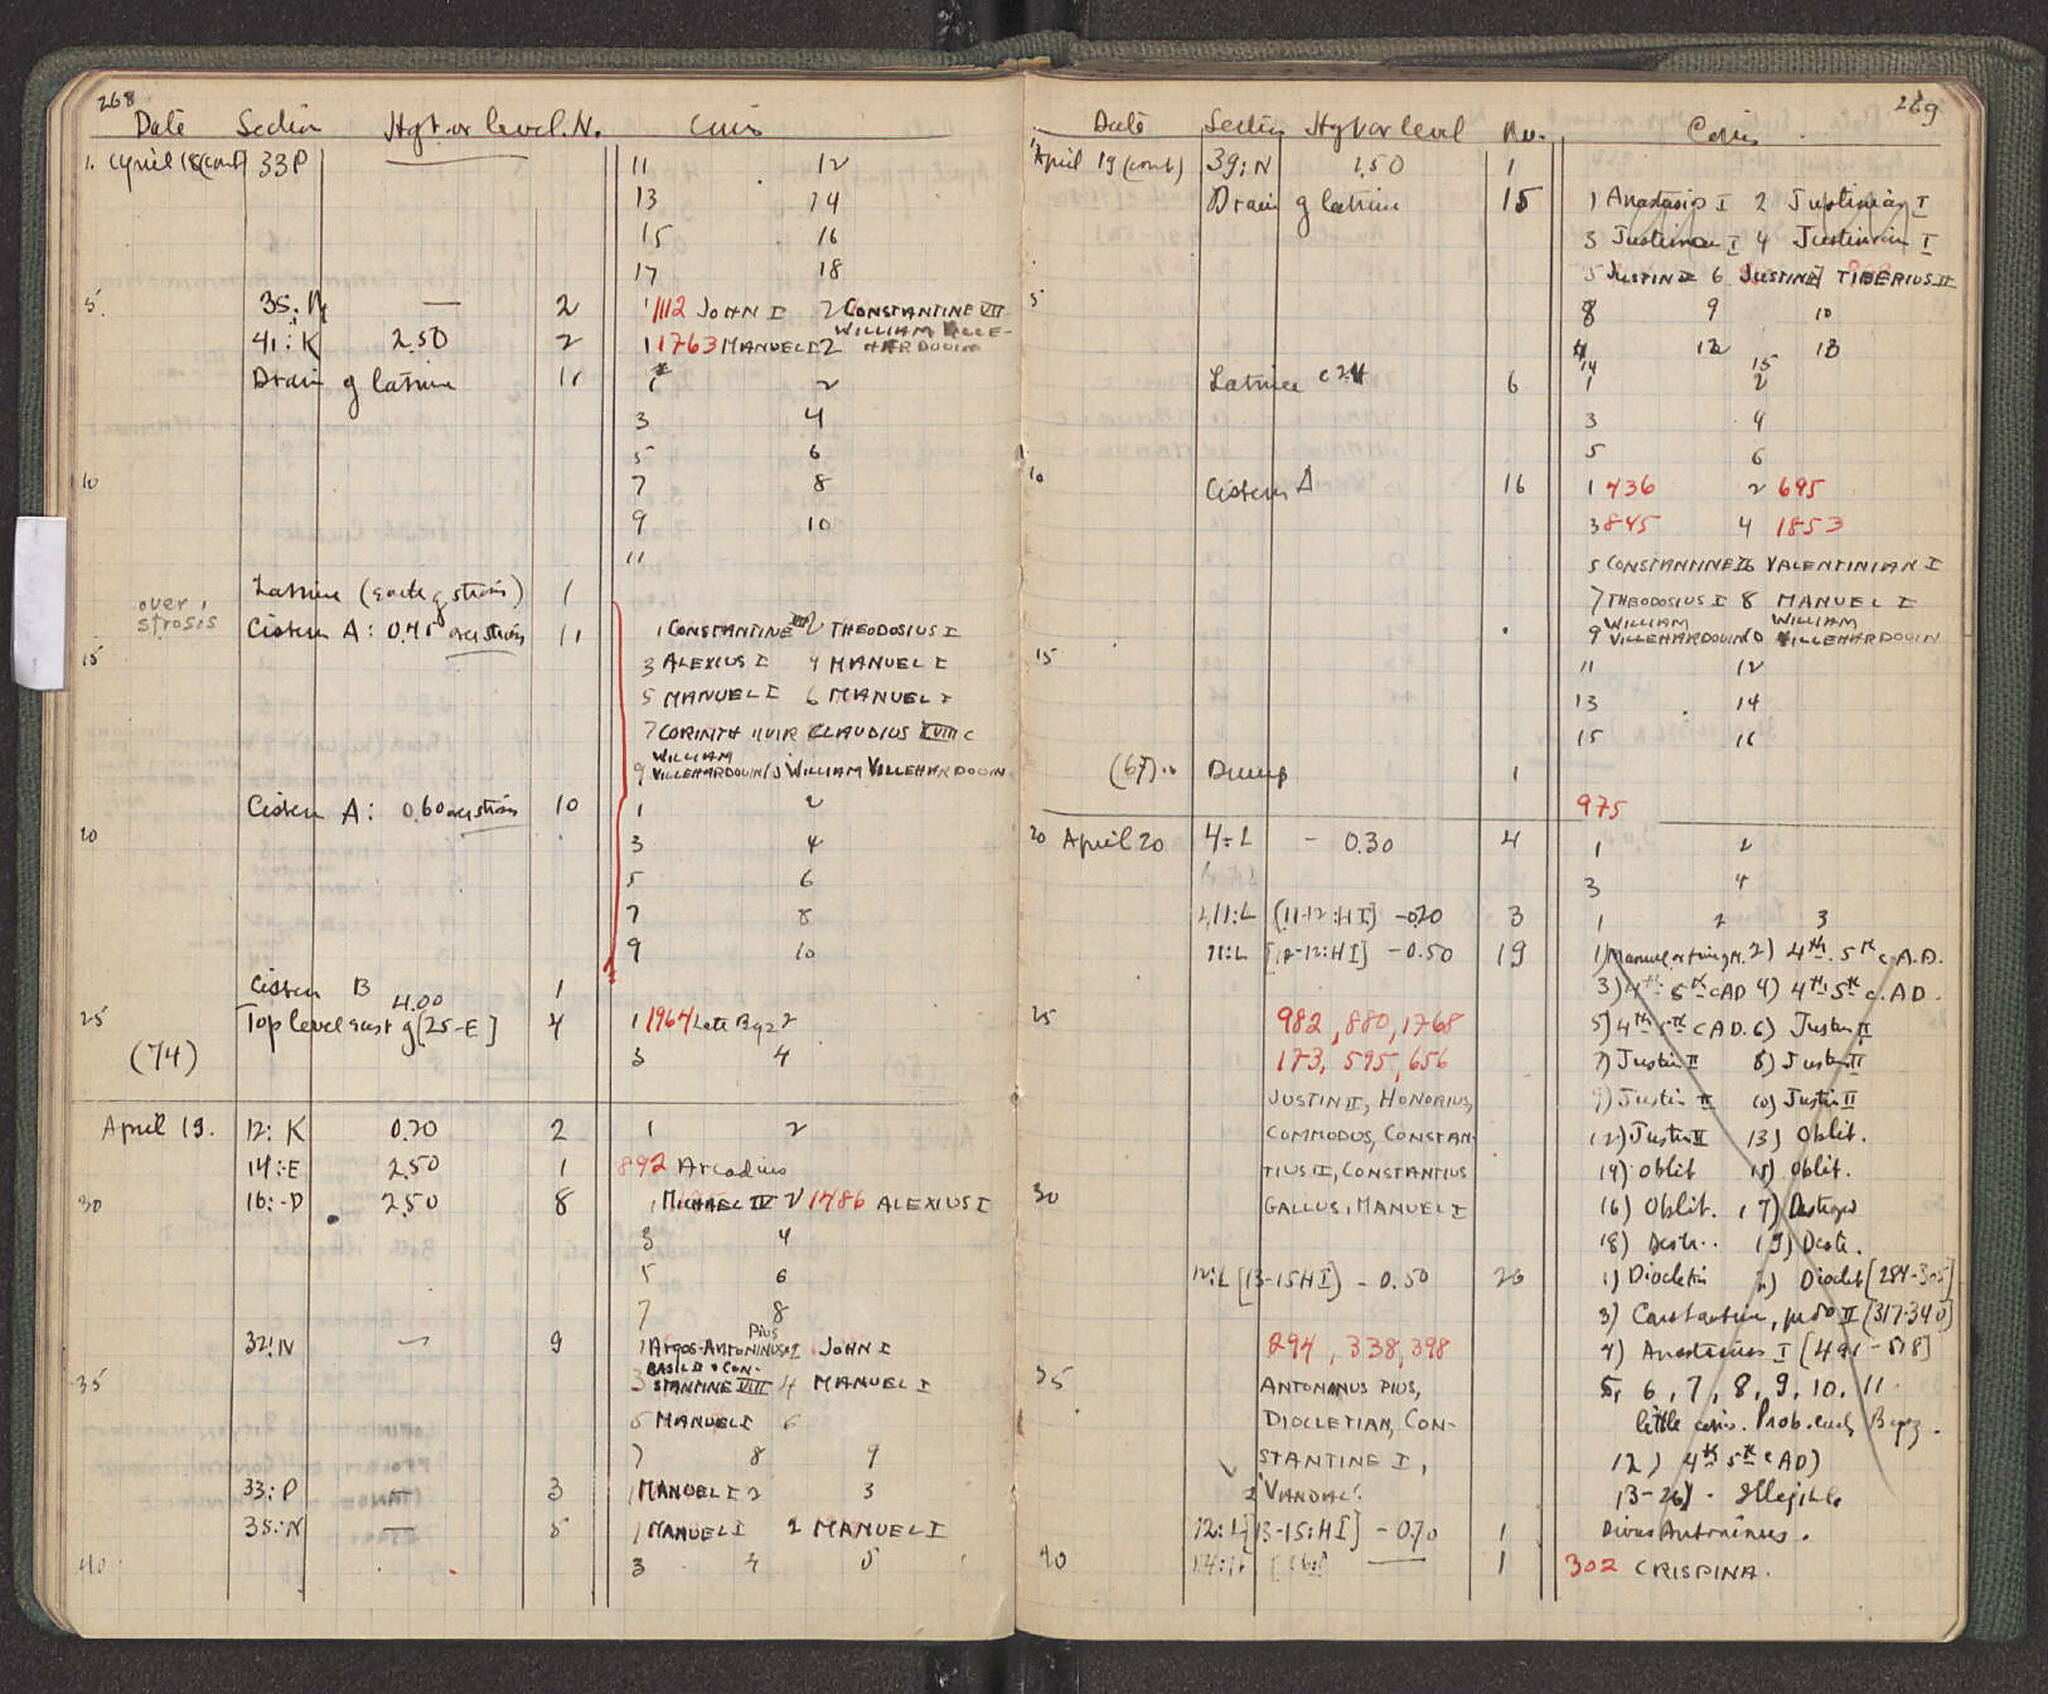 268
Date Section Hgt. or level. N. Coins
1. April 18 (cont) 33P 11 12
13 14
15 16
17 18
5. 35:N — 2 1 1112 JOHN I 2 CONSTANTINE VII
41:K 2.50 2 1 1763 MANUEL I 2 WILLIAM VILLE-
HARDOUIN
Drain of latrine 11 1 2
3 4
5 6
10 7 8
9 10
11
Latrine (south of strosis) 1
over strosis Cistern A: 0.45 over strosis 11 1 CONSTANTINE VII 2 THEODOSIUS I
15 3 ALEXIUS I 4 MANUEL I
5 MANUEL I 6 MANUEL I
7 CORINTH IIVIR CLAUDIUS XVIII C
WILLIAM
9 VILLEHARDOUIN 10 WILLIAM VILLEHARDOUIN
Cistern A: 0.60 over strosis 10 1 2
20 3 4
5 6
7 8
9 10
Cistern B 1
4.00
25 Top level east of [25-E] 4 1 1964 Late Byz 2
(74) 3 4
April 19. 12:K 0.70 2 1 2
14:-E 2.50 1 892 Arcadius
30 16:-D 2.50 8 1 MICHAEL IV 2 1486 ALEXIUS I
3 4
5 6
7 8
Pius
32:N — 9 1 Argos-ANTONINUS 2 JOHN I
BASIL II & CON-
35 3 STANTINE VIII 4 MANUEL I
5 MANUEL I 6
7 8 9
33:P — 3 1 MANUEL I 2 3
35:N — 5 1 MANUEL I 2 MANUEL I
40 3 4 5
269
Date Section Hgt or level No. Coins
1 April 19 (cont) 39:N 1.50 1
Drain of latrine 15 1 Anastasius I 2 Justinian I
3 Justinian I 4 Justinian I
5 JUSTIN II 6 JUSTIN II 7 TIBERIUS II
5 8 9 10
11 12 13
14 15
Latrine c 24 6 1 2
3 4
5 6
10 Cistern A 16 1 436 2 695
3 845 4 1853
5 CONSTANTINE II 6 VALENTINIAN I
7 THEODOSIUS I 8 MANUEL I
WILLIAM WILLIAM
9 VILLEHARDOUIN 10 VILLEHARDOUIN
15 11 12
13 14
15 16
(67) Dump 1
975
20 April 20 4:L - 0.30 4 1 2
3 4
11:L [11-12:HI] -0.20 3 1 2 3
11:L [12-12:HI] -0.50 19 1) Manuel or time of M. 2) 4th. 5th c. A.D.
3) 4th 5th c AD 4) 4th 5th c. AD.
25 982, 880, 1768 5) 4th 5th c AD. 6) Justin II
173, 595, 656 7) Justin II 8) Justin II
JUSTIN II, HONORIUS, 9) Justin II 10) Justin II
COMMODUS, CONSTAN- 12) Justin II 13) Oblit.
TIUS II, CONSTANTIUS 14) Oblit 15) Oblit.
30 GALLUS, MANUEL I 16) Oblit. 17) Destroyed
18) Destr.. 19) Destr.
12:L [13-15HI] - 0.50 26 1) Diocletin 2) Dioclet [284-305]
3) Constantine, II [317-340]
294, 338, 398 4) Anastasius I [491-518]
35 ANTONINUS PIUS, 5, 6, 7, 8, 9, 10, 11
DIOCLETIAN, CON- little coins. Prob. early Byz.
STANTINE I, 12) 4th 5th c AD)
2 'VANDAL'. 13-26) - Illegible
12:L [13-15:HI] - 0.70 1 Divus Antoninus.
40 — 1 302 CRISPINA.